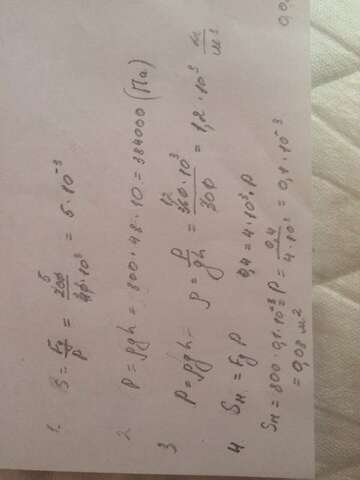 1. S = Fg/P = 200/40·10³ = 5·10⁻³
5
2 P = ρgh = 800·48·10 = 384000 (Па)
3 P = ρgh = ρ = P/gh = 360·10³/300 = 1,2·10³ кг/м³
12
4 Sн = Fg P 0,4 = 4·10³·P
Sн = 800·0,1·10⁻³ = P = 0,4/4·10³ = 0,1·10⁻³
= 0,08 м²
0,0